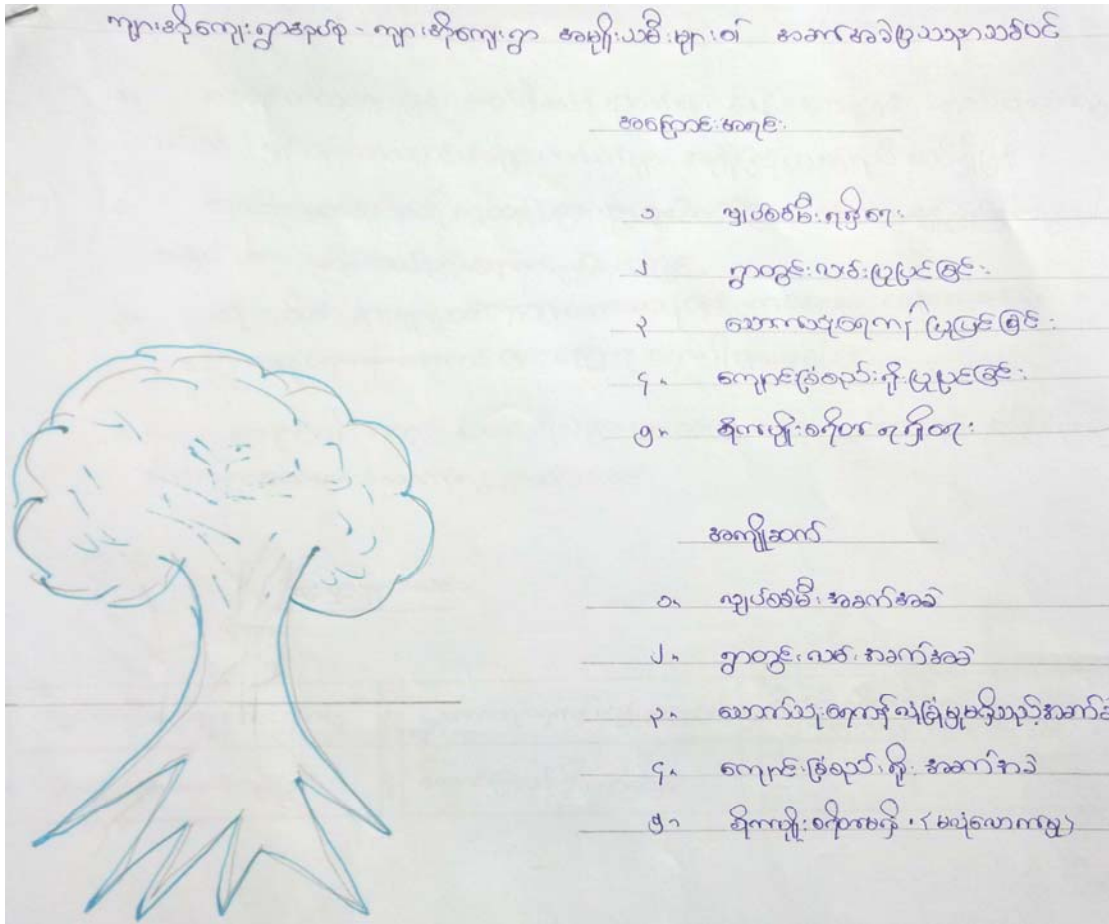 ကျားအိုကျေးရွာအုပ်စု - ကျားအိုကျေးရွာ အမျိုးသမီးများ၏ အခက်အခဲပြဿနာသစ်ပင်
အကြောင်းအရင်း
၁ လျှပ်စစ်မီးရရှိရေး
၂ ရွာတွင်းလမ်းပြုပြင်ခြင်း
၃ သောက်သုံးရေကန် ပြုပြင်ခြင်း
၄။ ကျောင်းခြံစည်းရိုးပြုပြင်ခြင်း
၅။ စိုက်ပျိုးစရိတ် ရရှိရေး
အကျိုးဆက်
၁။ လျှပ်စစ်မီးအခက်အခဲ
၂။ ရွာတွင်းလမ်းအခက်အခဲ
၃။ သောက်သုံးရေကန်လုံခြုံမှုမရှိသည့်အခက်
၄။ ကျောင်းခြံစည်းရိုး အခက်အခဲ
၅။ စိုက်ပျိုးစရိတ်မရှိ (မလုံလောက်မှု)